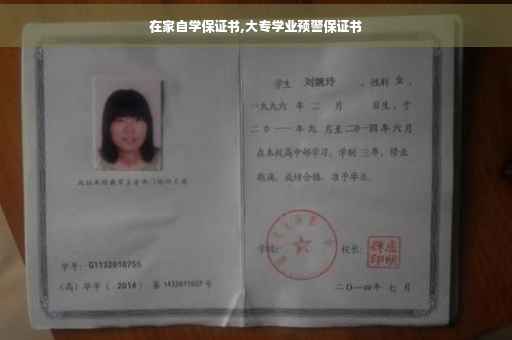 在家自学保证书,大专学业预警保证书
学生 刘婉玲 ,性别 女 ,
一九九六 年 二 月 日生,于
二〇一一年九 月至二〇一四年 六月
在本校高中部学习,学制 三年,修业
期满,成绩合格,准予毕业。
学校: 校长:
二〇一四年 七 月
学号: G1132010755
(高)毕字( 2014 )第 1432011027 号